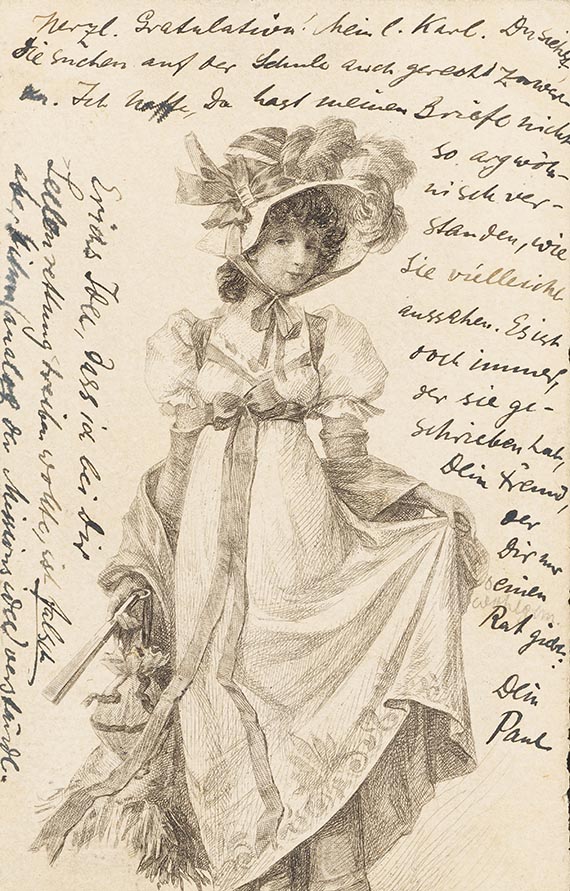 Herzl. Gratulation! Mein l. Karl. Du siehst,
die Suchen auf der Schule auch gerecht zu
Ich hoffe, Du hast meinen Brief nicht
so argwöh-
nisch ver-
standen, wie
sie vielleicht
aussehen. Es ist
doch immer,
der sie ge-
schrieben hat,
Dein Freund,
der
Dir nur
einen
Rat giebt.
Dein
Paul
Erichs Idee, dass ich bei Dir
Seelenrettung treiben wollte, ist falsch
aber analog der Missionsidee verständl.